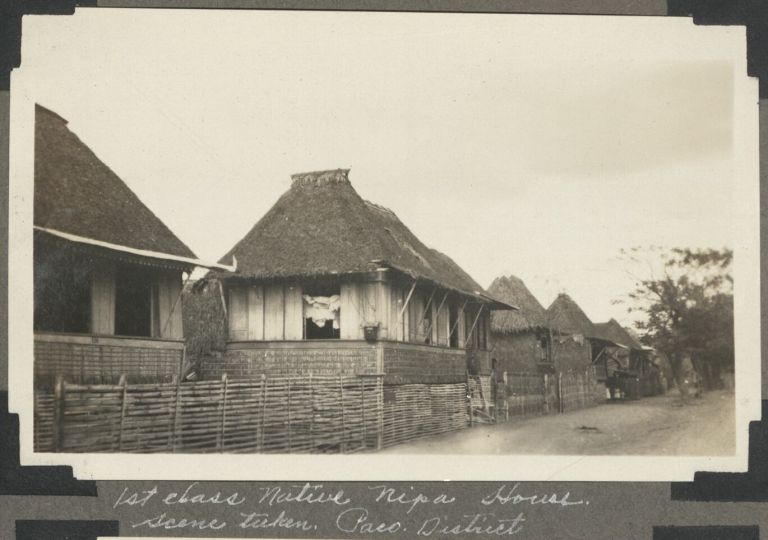 1st class Native Nipa House.
Scene taken. Paco. District